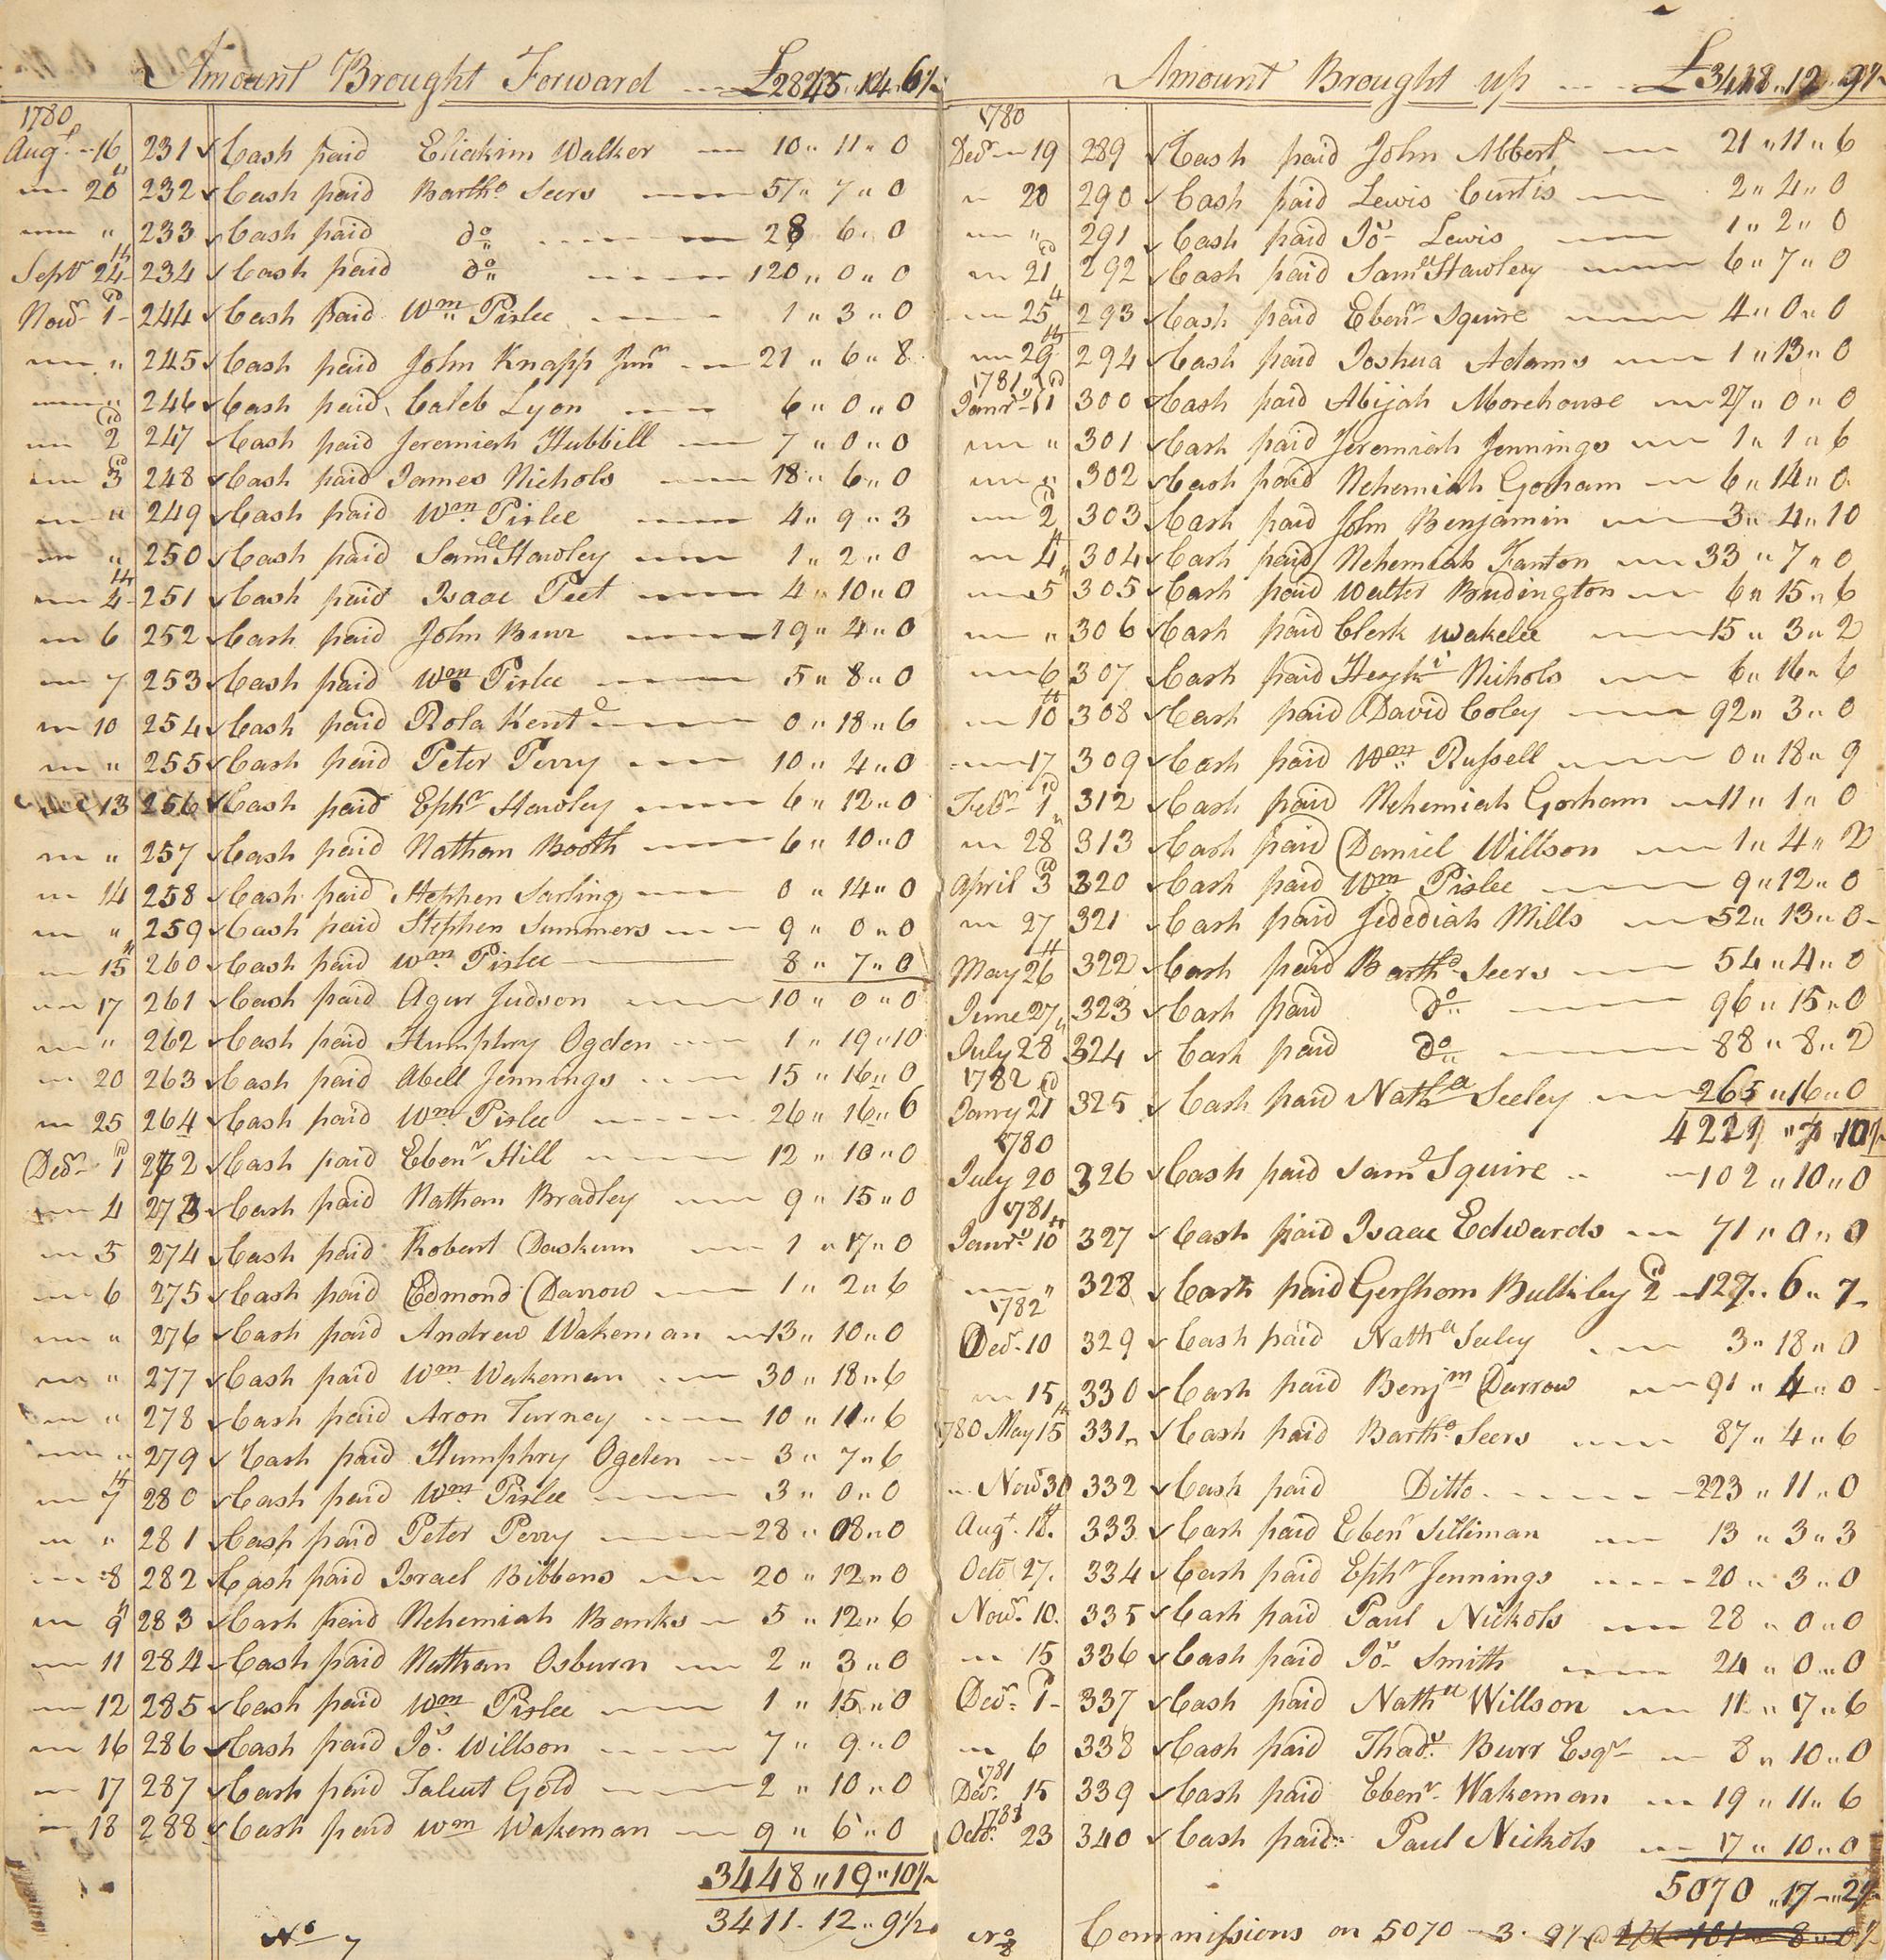 Amount Brought Forward £2845.14.6½
1780
Augt 16 231 Cash paid Eliakim Walker 10 " 11 " 0
" 20 232 Cash paid Bartho Seers 57 " 7 " 0
" " 233 Cash paid do 28 6 " 0
Septr 24th 234 Cash paid do 120 " 0 " 0
Novr 1d 244 Cash paid Wm Pislee 1 " 3 " 0
" 245 Cash paid John Knapp Junr 21 " 6 " 8
" 246 Cash paid Caleb Lyon 6 " 0 " 0
2d 247 Cash paid Jeremiah Hubbill 7 " 0 " 0
3d 248 Cash paid James Nichols 18 " 6 " 0
" 249 Cash paid Wm Pislee 4 " 9 " 3
" 250 Cash paid Samll Hawley 1 " 2 " 0
4th 251 Cash paid Isaac Peet 4 " 10 " 0
6 252 Cash paid John Burr 19 " 4 " 0
7 253 Cash paid Wm Pislee 5 " 8 " 0
10 254 Cash paid Rola Kent 0 " 18 " 6
" 255 Cash paid Peter Perry 10 " 4 " 0
13 256 Cash paid Ephr Hawley 6 " 12 " 0
" 257 Cash paid Nathan Booth 6 " 10 " 0
14 258 Cash paid Stephen Sarling 0 " 14 " 0
" 259 Cash paid Stephen Summers 9 " 0 " 0
15th 260 Cash paid Wm Pislee 8 " 7 " 0
17 261 Cash paid Agur Judson 10 " 0 " 0
" 262 Cash paid Humphry Ogden 1 " 19 " 10
20 263 Cash paid Abell Jennings 15 " 16 " 0
25 264 Cash paid Wm Pislee 26 " 16 " 6
Decr 1d 272 Cash paid Ebenr Hill 12 " 10 " 0
4 273 Cash paid Nathan Bradley 9 " 15 " 0
5 274 Cash paid Robert Daskum 1 " 17 " 0
6 275 Cash paid Edmond Darrow 1 " 2 " 6
" 276 Cash paid Andrew Wakeman 13 " 10 " 0
" 277 Cash paid Wm Wakeman 30 " 18 " 6
" 278 Cash paid Aron Turney 10 " 11 " 6
" 279 Cash paid Humphry Ogden 3 " 7 " 6
7th 280 Cash paid Wm Pislee 3 " 0 " 0
" 281 Cash paid Peter Perry 28 " 08 " 0
8 282 Cash paid Israel Bibbens 20 " 12 " 0
9th 283 Cash paid Nehemiah Banks 5 " 12 " 6
11 284 Cash paid Nathan Osburn 2 " 3 " 0
12 285 Cash paid Wm Pislee 1 " 15 " 0
16 286 Cash paid Jos. Willson 7 " 9 " 0
17 287 Cash paid Talcut Gold 2 " 10 " 0
18 288 Cash paid Wm Wakeman 9 " 6 " 0
3448 " 19 " 10½
3411 . 12 " 9½
No 7
Amount Brought up £3418 " 12 9½
1780
Decr 19 289 Cash paid John Abbert 21 " 11 " 6
20 290 Cash paid Lewis Curtis 2 " 4 " 0
" 291 Cash paid Jos Lewis 1 " 2 " 0
21d 292 Cash paid Samll Hawley 6 " 7 " 0
25th 293 Cash paid Ebenr Squire 4 " 0 " 0
29th 294 Cash paid Joshua Adams 1 " 13 " 0
1781
Janry 1d 300 Cash paid Abijah Morehouse 27 " 0 " 0
" 301 Cash paid Jeremiah Jennings 1 " 1 " 6
" 302 Cash paid Nehemiah Gorham 6 " 14 " 0
2d 303 Cash paid John Benjamin 3 " 4 " 10
4th 304 Cash paid Nehemiah Fanton 33 " 7 " 0
5 305 Cash paid Walter Budington 6 " 15 " 6
" 306 Cash paid Clerk Wakelee 15 " 3 " 2
6 307 Cash paid Hezhi Nichols 6 " 16 " 6
10th 308 Cash paid David Coley 92 " 3 " 0
17 309 Cash paid Wm Russell 0 " 18 " 9
Febr 1d 312 Cash paid Nehemiah Gorham 11 " 1 " 0
28 313 Cash paid Daniel Willson 1 " 4 " 2
April 3d 320 Cash paid Wm Pislee 9 " 12 " 0
27 321 Cash paid Jedediah Mills 52 " 13 " 0
May 26th 322 Cash paid Bartho Seers 54 " 4 " 0
June 27 323 Cash paid do 96 " 15 " 0
July 28 324 Cash paid do 88 " 8 " 2
1782
Janry 21d 325 Cash paid Nathll Seeley 265 " 16 " 0
4229 " 7 " 10½
1780
July 20 326 Cash paid Saml Squire 102 " 10 " 0
1781
Janry 10th 327 Cash paid Isaac Edwards 71 " 0 " 0
" 328 Cash paid Gershom Bulkley 2d 127 " 6 " 7
1782
Decr 10 329 Cash paid Nathll Seeley 3 " 18 " 0
15 330 Cash paid Benjm Darrow 91 " 4 " 0
1780 May 15th 331 Cash paid Bartho Seers 87 " 4 " 6
Novr 30 332 Cash paid Ditto 223 " 11 " 0
Augt 18th 333 Cash paid Ebenr Silliman 13 " 3 " 3
Octo 27. 334 Cash paid Ephr Jennings 20 " 3 " 0
Novr. 10. 335 Cash paid Paul Nickols 28 " 0 " 0
15 336 Cash paid Jos Smith 24 " 0 " 0
Decr. 1d 337 Cash paid Nathll Willson 11 " 17 " 6
6 338 Cash paid Thads. Burr Esqr 8 " 10 " 0
1781
Decr. 15 339 Cash paid Ebenr. Wakeman 19 " 11 " 6
1783
Octo. 23 340 Cash paid Paul Nickols 17 " 10 " 0
5070 " 17 " 2½
No 8 Commissions on 5070 3. 9½ @